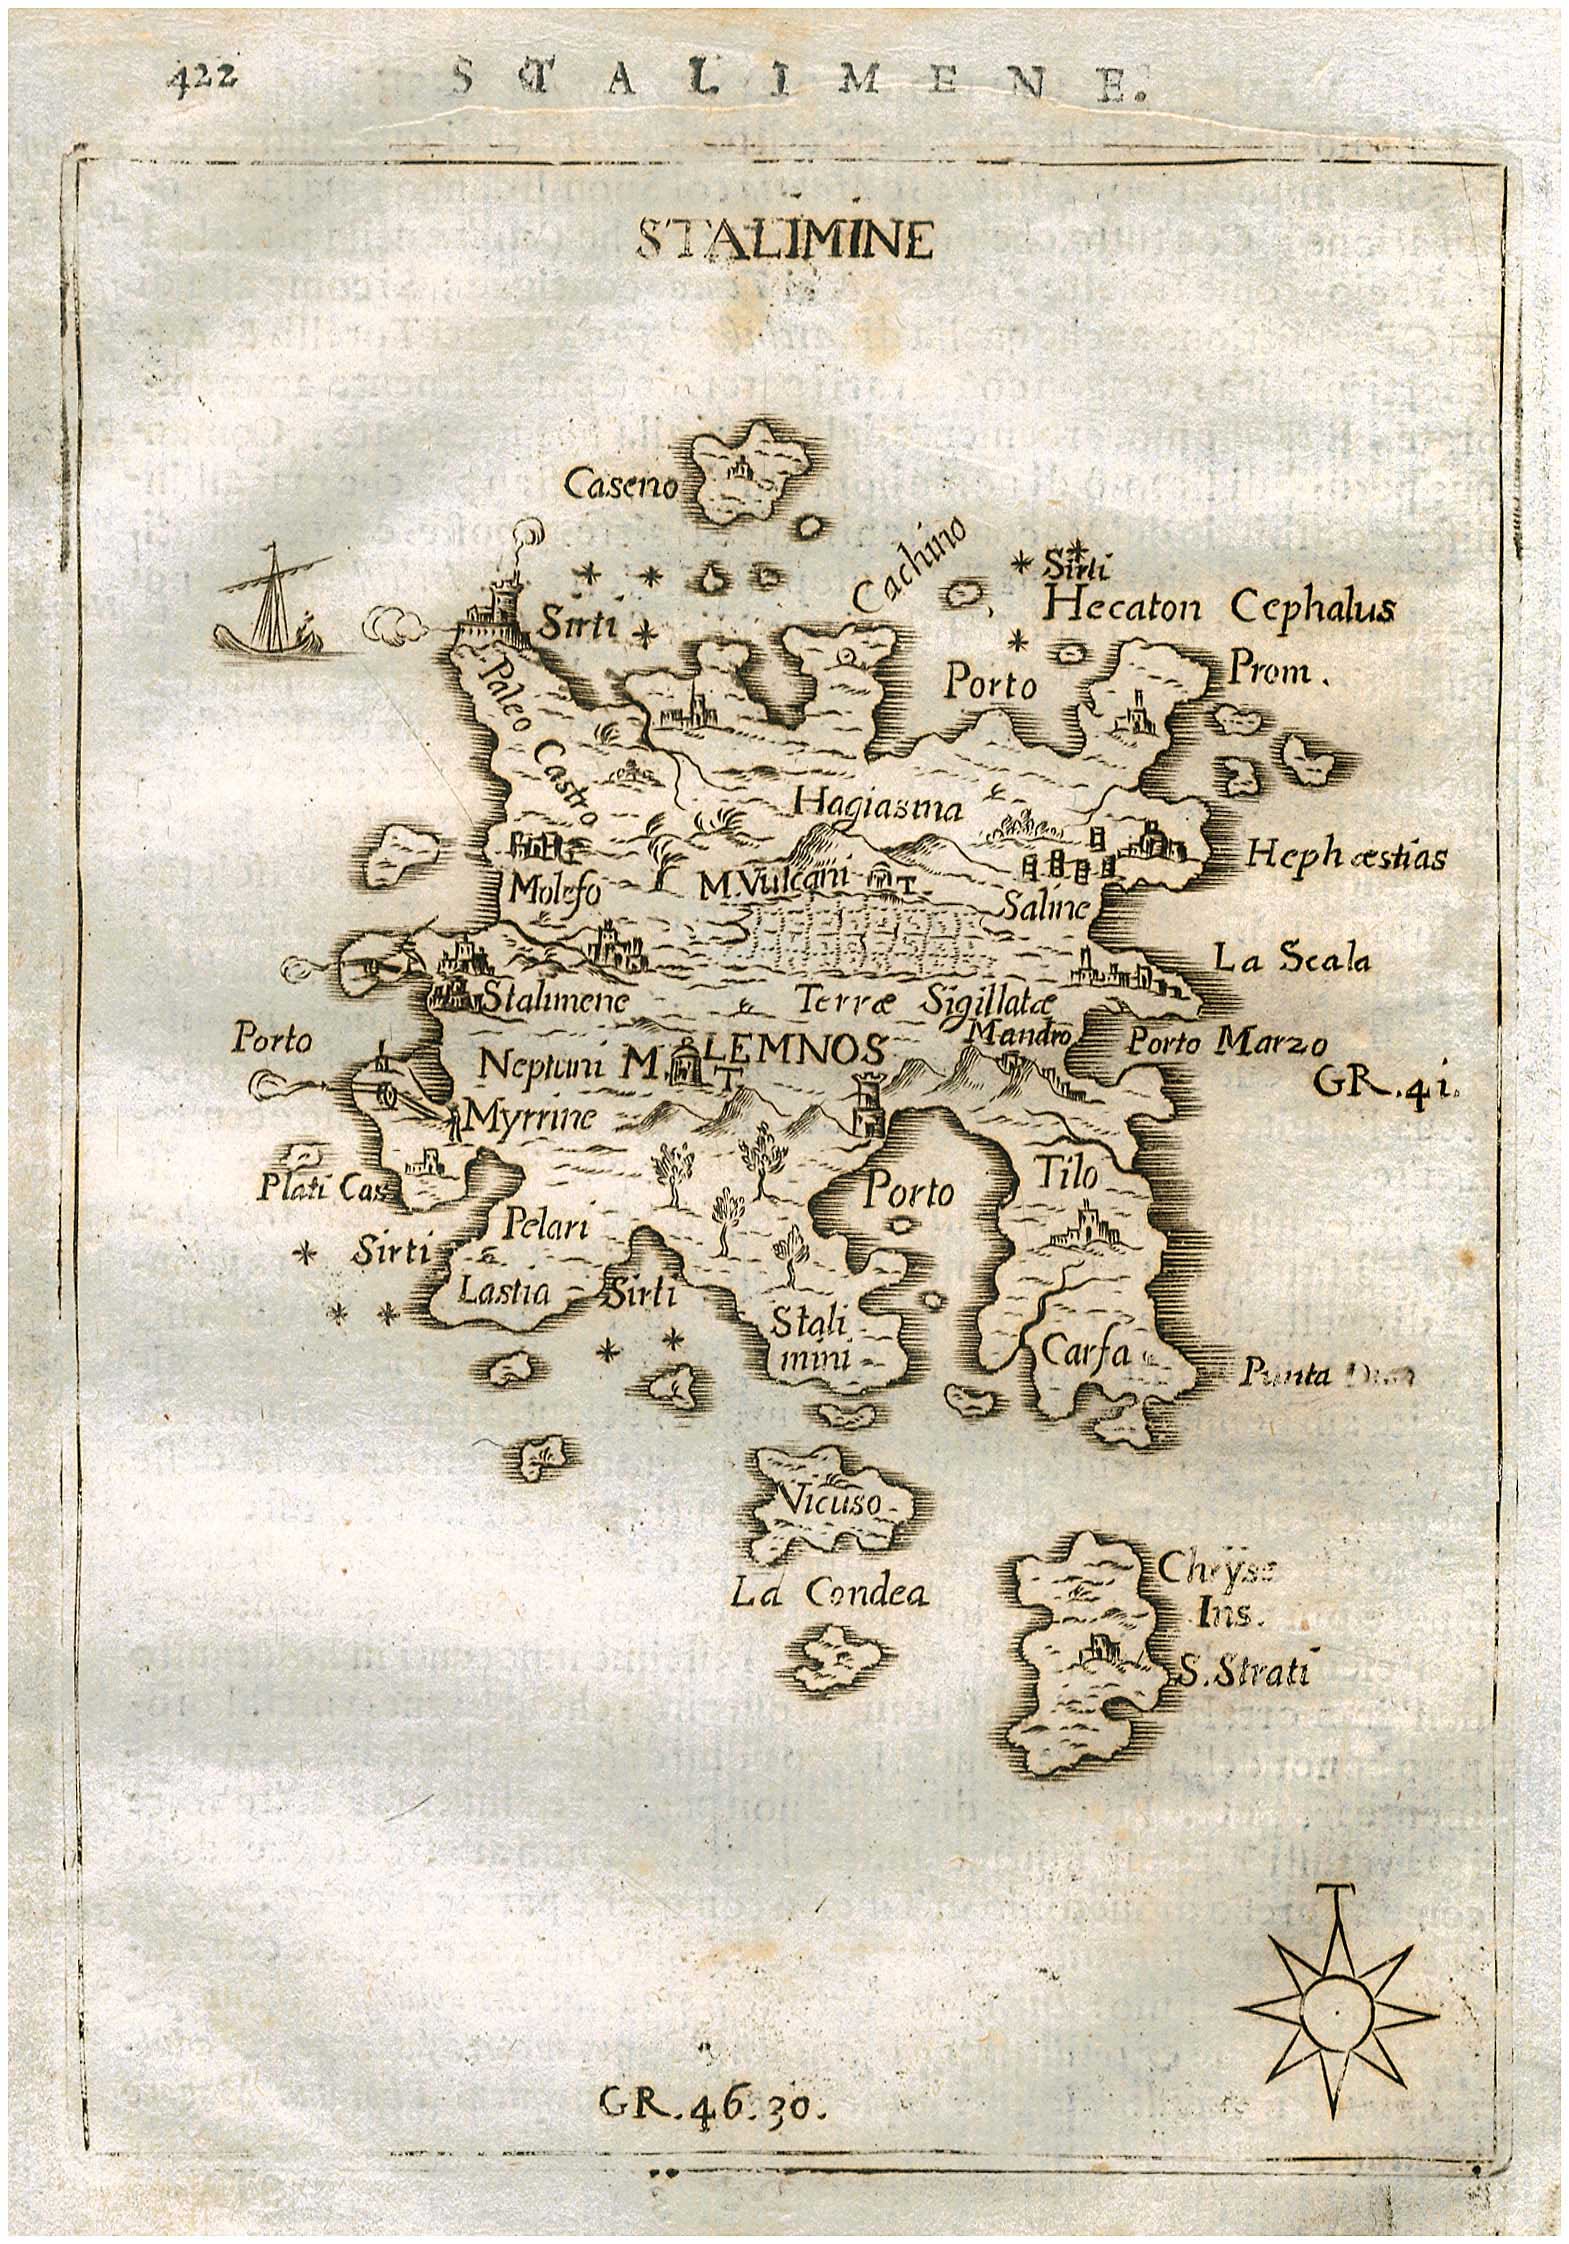 422 STALIMENE.
STALIMINE
Caseno
Cachino
Sirti
Hecaton Cephalus
Prom.
Sirti
Porto
Paleo Castro
Hagiasma
Hephæstias
Molefo
M. Vulcani T.
Saline
La Scala
Stalimene
Terræ Sigillatæ
Mandro
Porto Marzo
GR. 41.
Porto
Neptuni M. T.
LEMNOS
Myrrine
Plati Cas
Porto
Tilo
Pelari
Sirti
Lastia
Sirti
Stali
mini
Carfa
Punta
Vicuso
La Condea
Chrÿse
Ins.
S. Strati
T
GR. 46. 30.